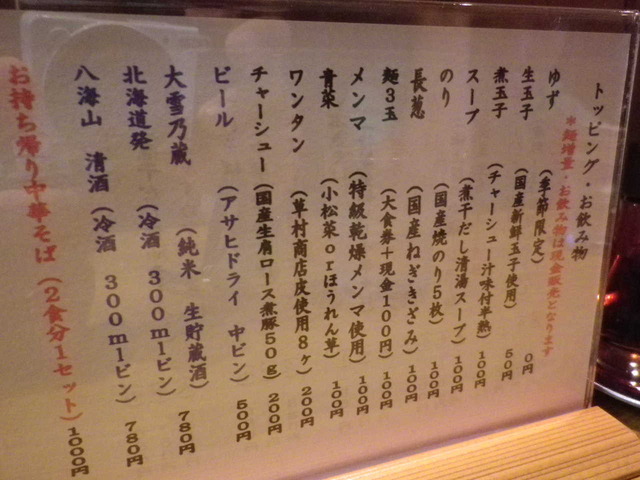 トッピング・お飲み物
＊麺増量・お飲み物は現金販売となります
ゆず（季節限定）０円
生玉子（国産新鮮玉子使用）５０円
煮玉子（チャーシュー汁味付半熟）１００円
スープ（煮干だし清湯スープ）１００円
のり（国産焼のり５枚）１００円
長葱（国産ねぎきざみ）１００円
麺３玉（大食券＋現金１００円）１００円
メンマ（特級乾燥メンマ使用）１００円
青菜（小松菜ｏｒほうれん草）１００円
ワンタン（草村商店皮使用８ヶ）２００円
チャーシュー（国産生肩ロース煮豚５０ｇ）２００円
ビール（アサヒドライ　中ビン）５００円
大雪乃蔵（純米　生貯蔵酒）
北海道発（冷酒　３００ｍｌビン）７８０円
八海山　清酒（冷酒　３００ｍｌビン）７８０円
お持ち帰り中華そば（２食分１セット）１０００円